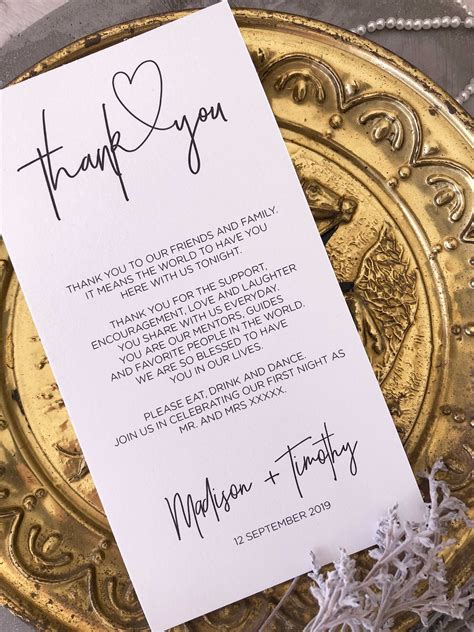 thank you
THANK YOU TO OUR FRIENDS AND FAMILY.
IT MEANS THE WORLD TO HAVE YOU
HERE WITH US TONIGHT.
THANK YOU FOR THE SUPPORT,
ENCOURAGEMENT, LOVE AND LAUGHTER
YOU SHARE WITH US EVERYDAY.
YOU ARE OUR MENTORS, GUIDES
AND FAVORITE PEOPLE IN THE WORLD.
WE ARE SO BLESSED TO HAVE
YOU IN OUR LIVES.
PLEASE EAT, DRINK AND DANCE.
JOIN US IN CELEBRATING OUR FIRST NIGHT AS
MR. AND MRS XXXXX.
Madison + Timothy
12 SEPTEMBER 2019